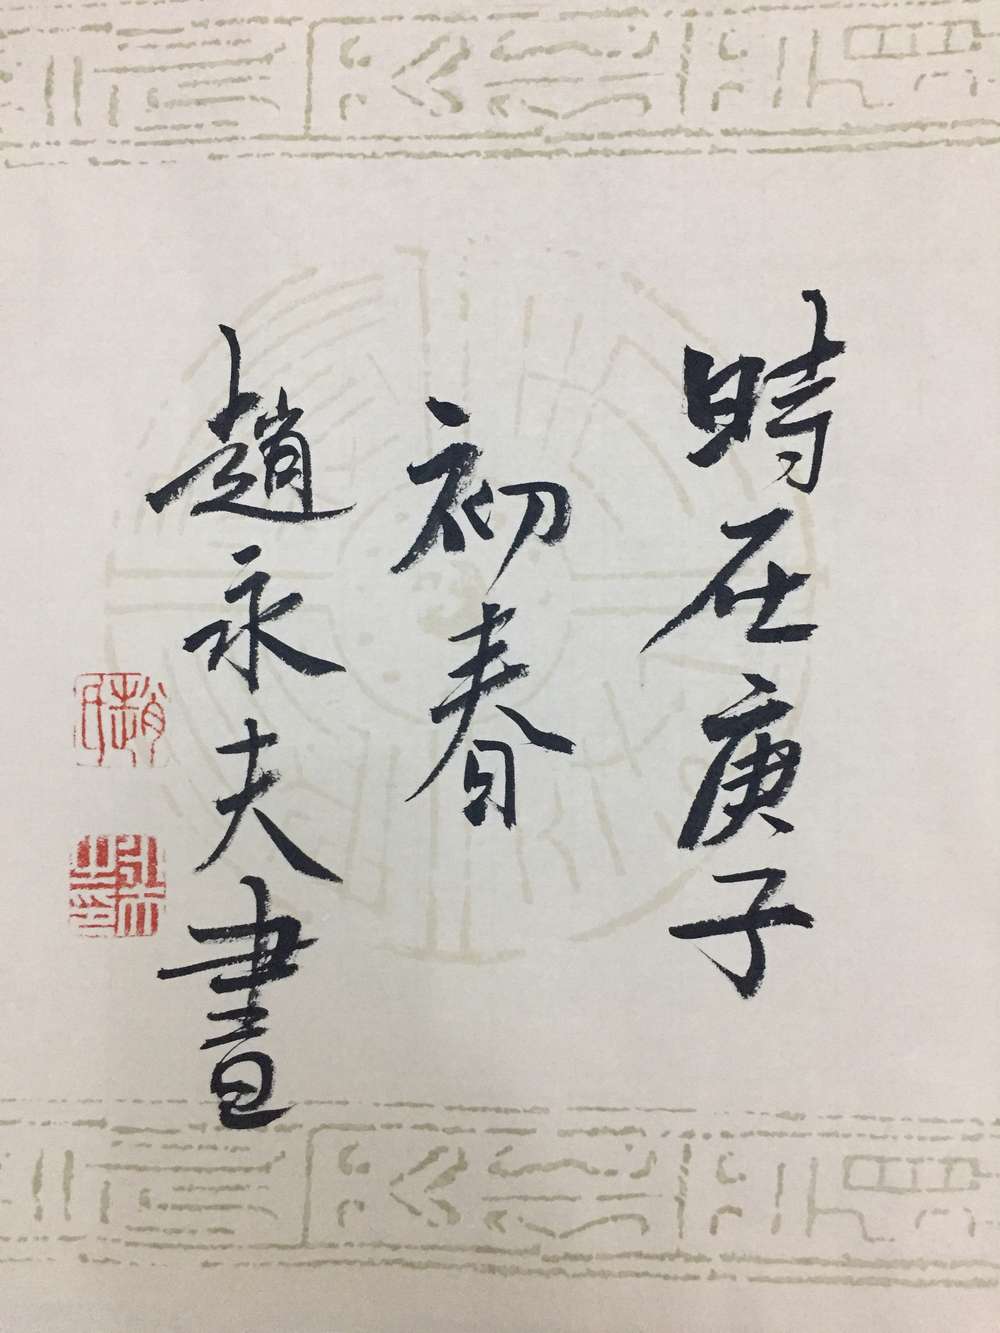 時在庚子
初春
趙永夫書